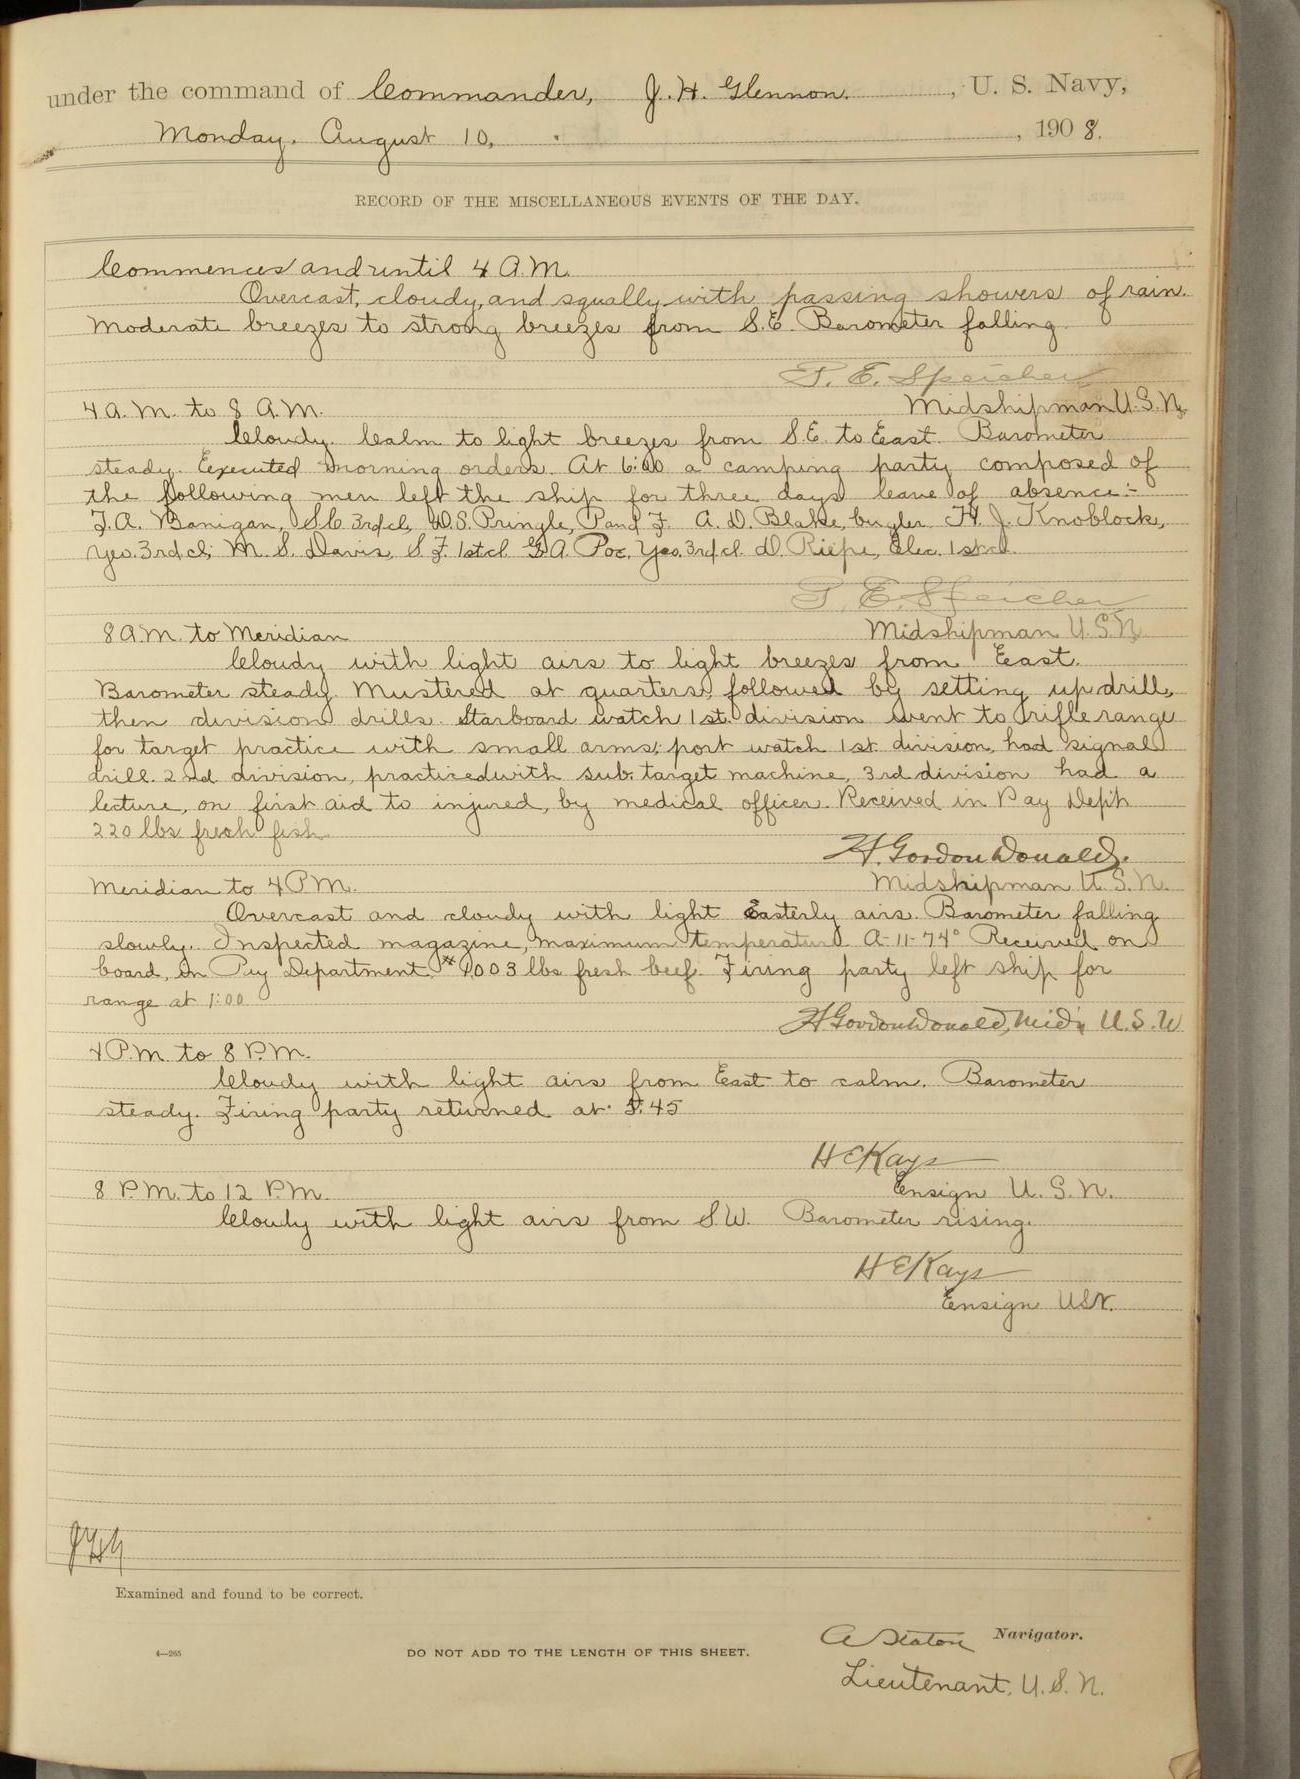 under the command of Commander, J. H. Glennon. , U. S. Navy,
Monday, August 10, , 1908.
RECORD OF THE MISCELLANEOUS EVENTS OF THE DAY.
Commences and until 4 A.M.
Overcast, cloudy, and squally with passing showers of rain.
Moderate breezes to strong breezes from S.E. Barometer falling.
P. E. Speicher
Midshipman U.S.N.
4 A.M. to 8 A.M.
Cloudy. Calm to light breezes from S.E. to East. Barometer
steady. Executed morning orders. At 6:00 a camping party composed of
the following men left the ship for three days leave of absence:-
F.A. Banigan, S.C. 3rd cl, W.S. Pringle, P and F. A. D. Blake, bugler H. J. Knoblock,
Yeo. 3rd cl; M. S. Davis, S.F. 1st cl. G.A. Poe, Yeo. 3rd cl. D. Riepe, Elec. 1st cl.
P. E. Speicher
Midshipman U.S.N.
8 A.M. to Meridian
Cloudy with light airs to light breezes from East.
Barometer steady. Mustered at quarters, followed by setting up drill,
then division drills. Starboard watch 1st. division went to rifle range
for target practice with small arms; port watch 1st. division, had signal
drill. 2nd division, practiced with sub. target machine, 3rd division had a
lecture, on first aid to injured, by medical officer. Received in Pay Dep't
220 lbs fresh fish
H. Gordon Donald.
Midshipman U.S.N.
Meridian to 4 P.M.
Overcast and cloudy with light Easterly airs. Barometer falling
slowly. Inspected magazine, maximum temperature A-11-74° Received on
board, in Pay Department 1003 lbs fresh beef. Firing party left ship for
range at 1:00
H Gordon Donald, Mid'n U.S.N
4 P.M. to 8 P.M.
Cloudy with light airs from East to calm. Barometer
steady. Firing party returned at 5:45
H E Kays
Ensign U.S.N.
8 P.M. to 12 P.M.
Cloudy with light airs from S.W. Barometer rising.
H E Kays
Ensign USN.
JHG
Examined and found to be correct.
A Staton Navigator.
4—265
DO NOT ADD TO THE LENGTH OF THIS SHEET.
Lieutenant, U.S.N.